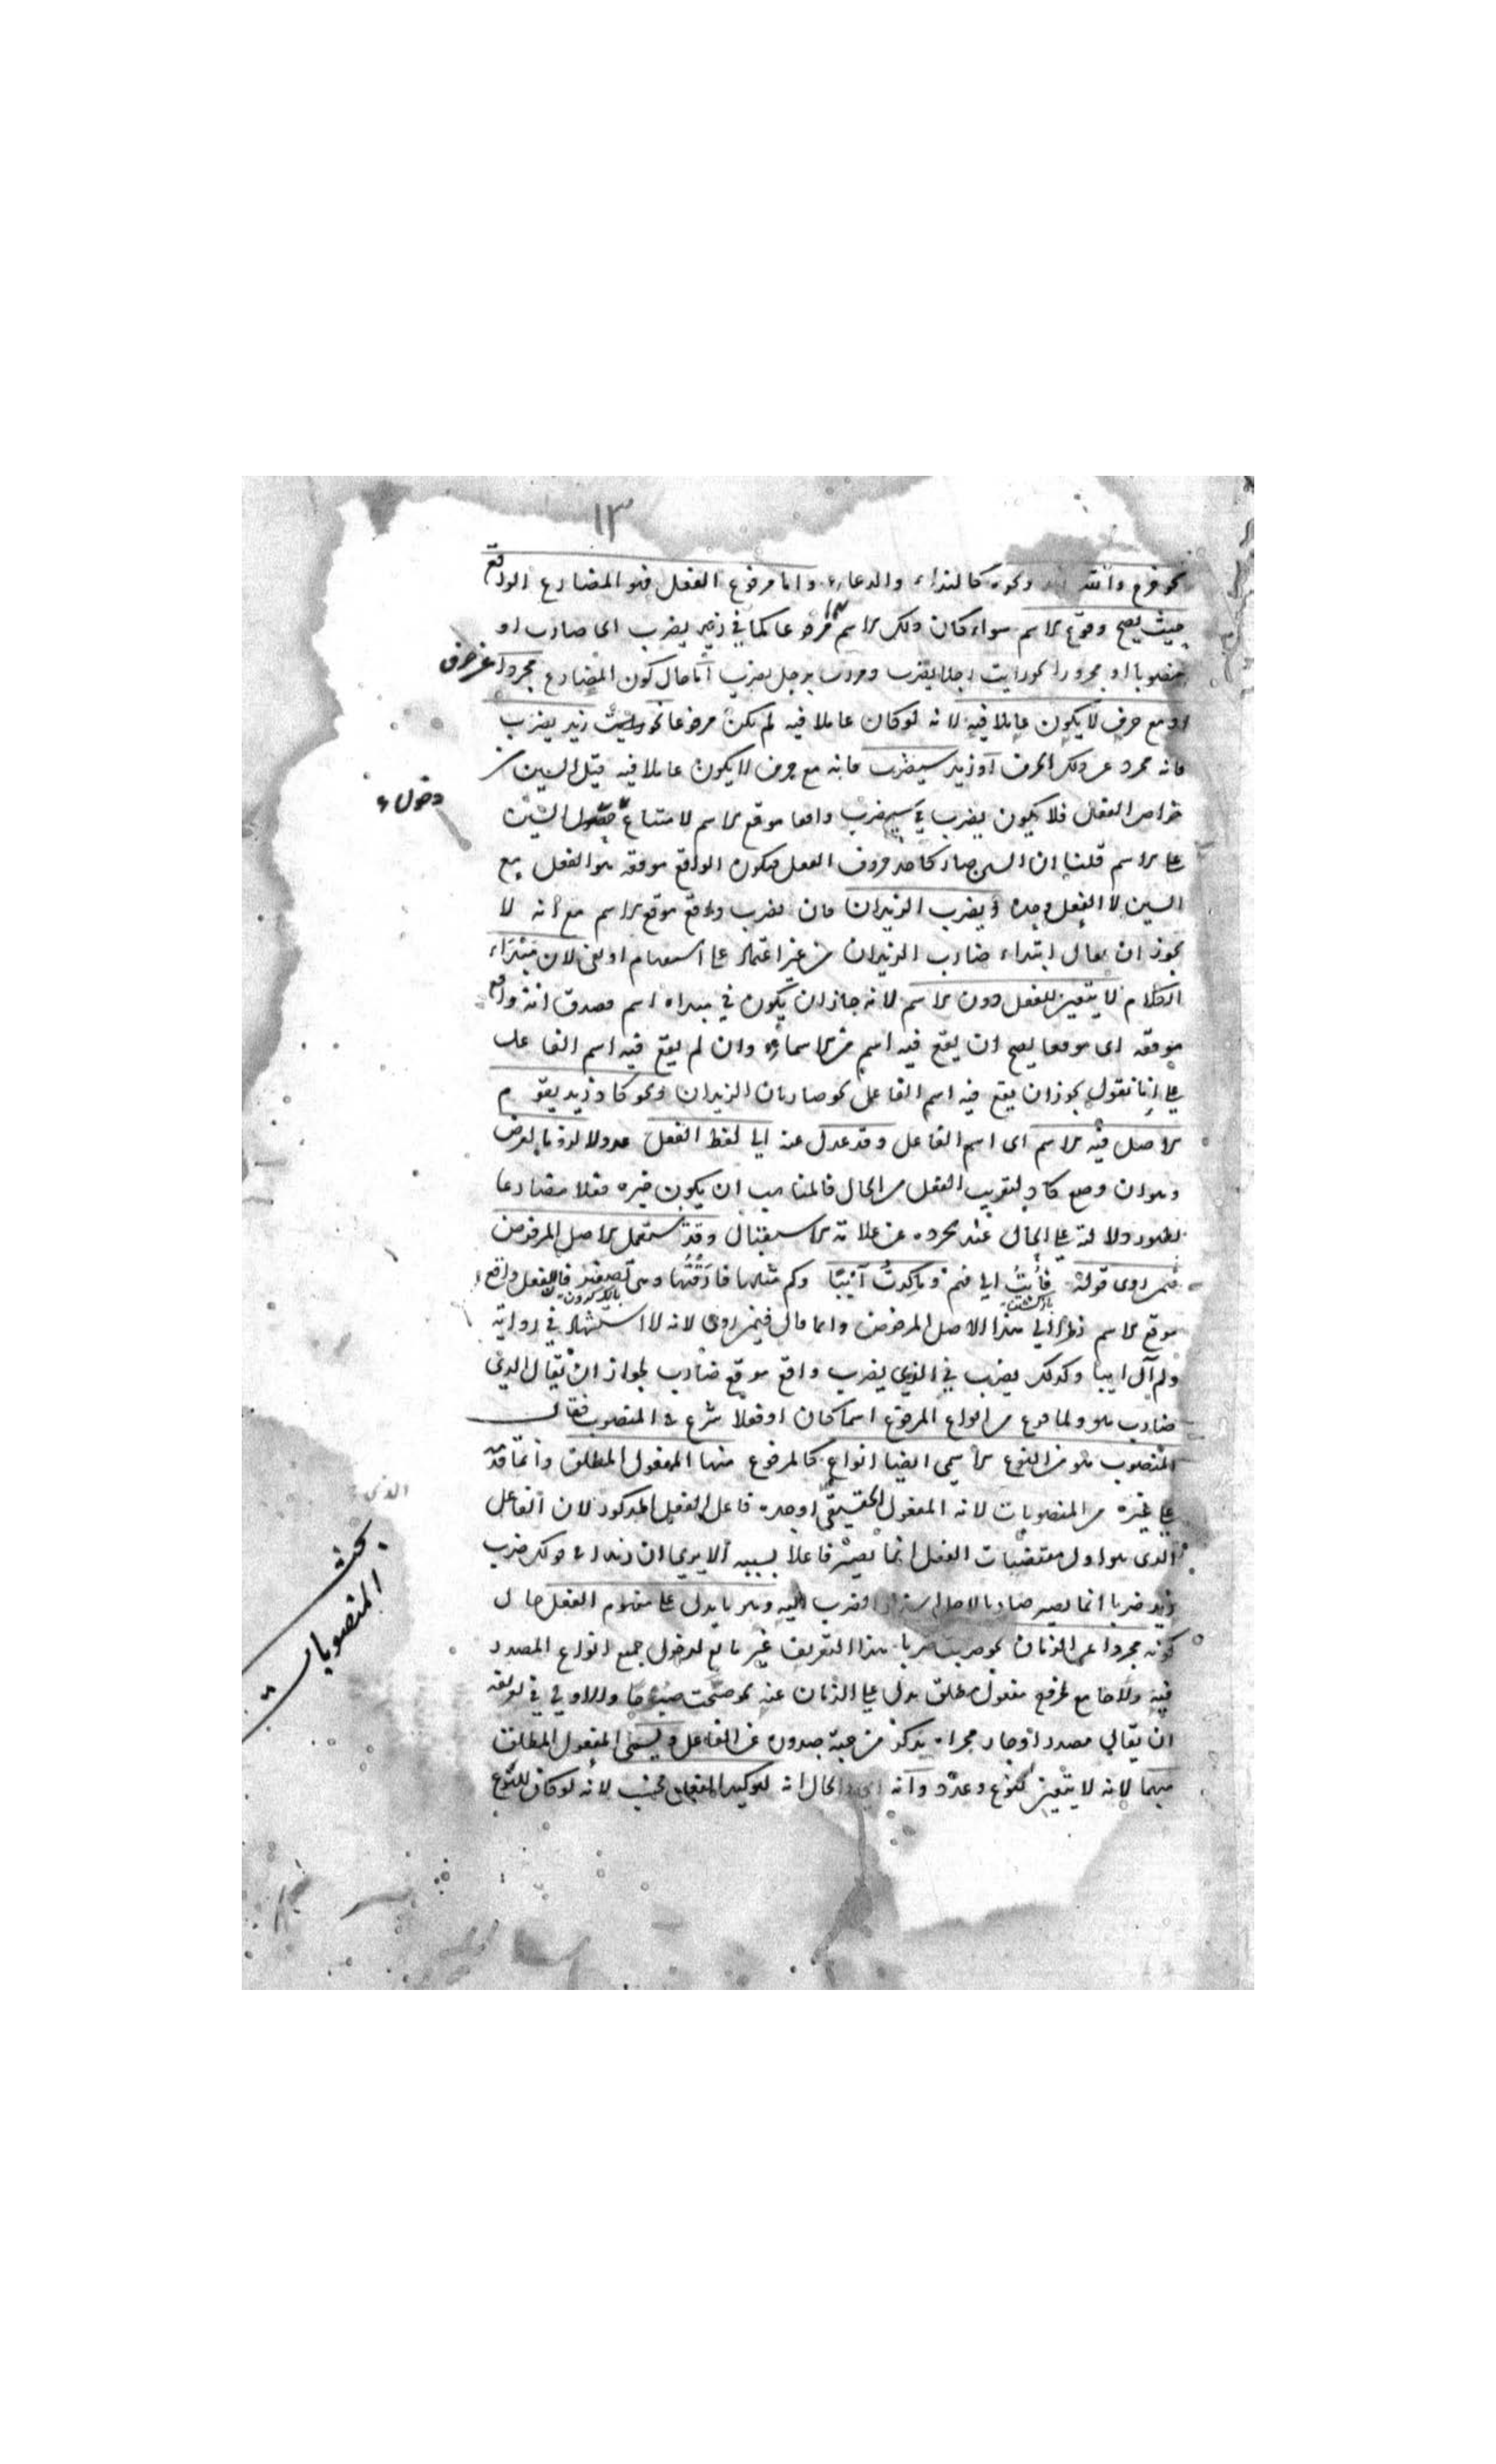 ١٣
نحو فرع وانت وكونه كالنداء والدعاء واما مرفوع الفعل فهو المضارع الواقع
حيث يصح وقوع الاسم سواء كان ذلك الاسم مرفوعا كما في زيد يضرب اى ضارب او
منصوبا او مجرورا نحو رايت رجلا يضرب ومررت برجل يضرب اما حال كون المضارع مجردا عن حرف
او مع حرف لا يكون عاملا فيه لانه لو كان عاملا فيه لم يكن مرفوعا نحو زيد يضرب
فانه مجرد عن ذلك الحرف او زيد سيضرب فانه مع حرف لا يكون عاملا فيه قيل السين من
خواص الفعل فلا يكون يضرب في سيضرب واقعا موقع الاسم لامتناع دخول السين
دخول
على الاسم قلنا ان السين صار كاحد حروف الفعل فيكون الواقع موقعه هو الفعل مع
السين لا الفعل وحده ويضرب الزيدان فان يضرب واقع موقع الاسم مع انه لا
يجوز ان يقال ابتداء ضارب الزيدان من غير اعتماد على استفهام او نفى لان مبتداء
الكلام لا يتعين للفعل دون الاسم لانه جاز ان يكون في مبداه اسم فصدق انه واقع
موقعه اى موقعا يصح ان يقع فيه اسم من الاسماء وان لم يقع فيه اسم الفاعل
على انا نقول يجوز ان يقع فيه اسم الفاعل نحو ضاربان الزيدان ونحو كاد زيد يقوم
الاصل فيه الاسم اى اسم الفاعل وقد عدل عنه الى لفظ الفعل عدولا
وهو ان وضع كاد لتقريب الفعل من الحال فالمناسب ان يكون خبره فعلا مضارعا
لظهور دلالته على الحال عند تجرده عن علامة الاستقبال وقد استعمل الاصل المرفوض
فيمن روى قوله فأبت الى فهم وما كدت آئبا وكم مثلها فارقتها وهى تصفر فالفعل واقع
موقع الاسم نظرا الى هذا الاصل المرفوض وانما قال فيمن روى لانه لا استشهاد في رواية
ولم آل ايبا وكذلك يضرب في الذى يضرب واقع موقع ضارب لجواز ان يقال الذى
ضارب هو ولما فرغ من انواع المرفوع اسما كان او فعلا شرع في المنصوب فقال
المنصوب هو من النوع الاسمى ايضا انواع كالمرفوع منها المفعول المطلق وانما قدمه
على غيره من المنصوبات لانه المفعول الحقيقى اوجده فاعل الفعل المذكور لان الفاعل
الذى
الذى هو اول مقتضيات الفعل انما يصير فاعلا بسببه الا يرى ان زيدا في قولك ضرب
بحث
المنصوبات
زيد ضربا انما يصير ضاربا الضرب اليه وهو ما يدل على مفهوم الفعل حال
كونه مجردا عن الزمان نحو ضربت ضربا هذا التعريف غير مانع لدخول جميع انواع المصدر
فيه ولا جامع لخروج مفعول مطلق يدل على الزمان عنه والاولى في تعريفه
ان يقال مصدر او جار مجراه يذكر من جهة صدوره عن الفاعل ويسمى المفعول المطلق
مبهما لانه لا يتعين بنوع وعدد وانه الحال انه لتوكيد الفعل فحسب لانه لو كان للنوع